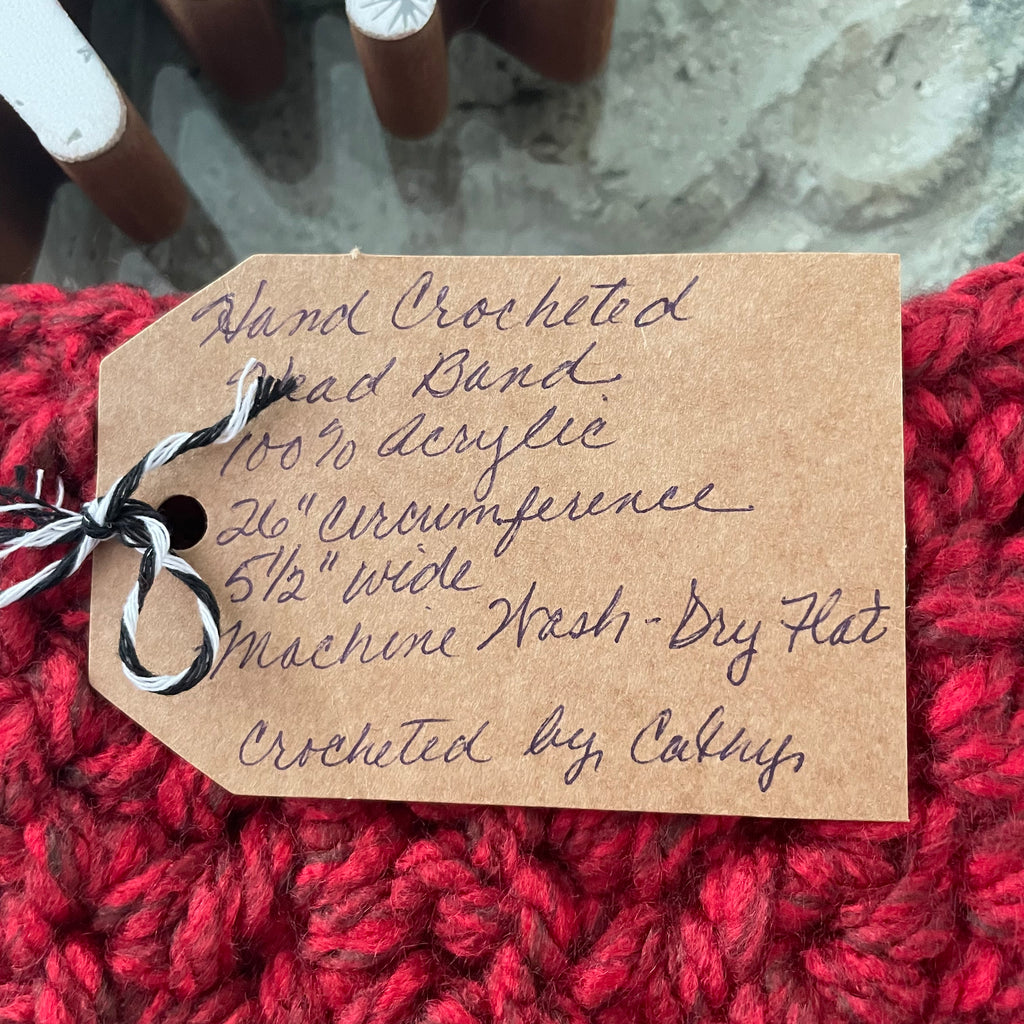 Hand Crocheted
Head Band
100% acrylic
26" Circumference
5 1/2" wide
Machine Wash - Dry Flat
Crocheted by Cathy